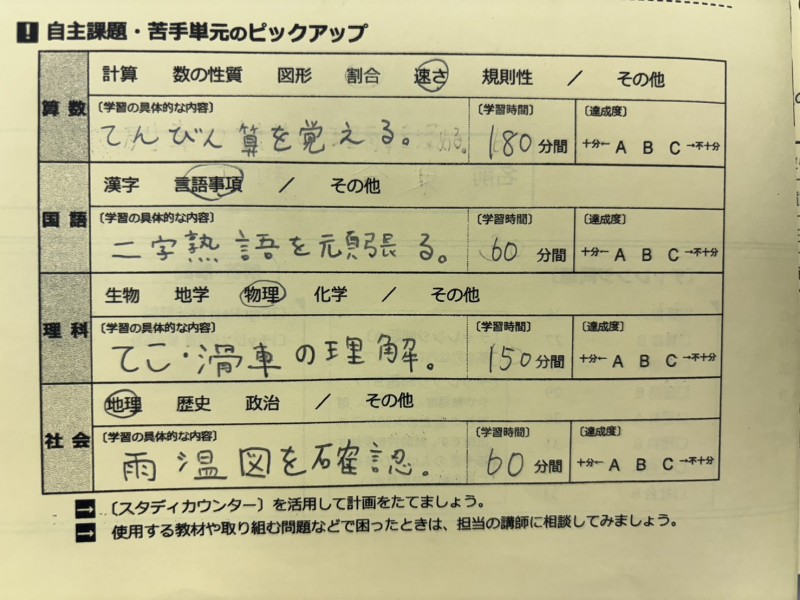 ! 自主課題・苦手単元のピックアップ
算数
計算 数の性質 図形 割合 速さ 規則性 / その他
〔学習の具体的な内容〕
てんびん算を覚える。
〔学習時間〕
180分間
〔達成度〕
十分← A B C →不十分
国語
漢字 言語事項 / その他
〔学習の具体的な内容〕
二字熟語を頑張る。
〔学習時間〕
60分間
〔達成度〕
十分← A B C →不十分
理科
生物 地学 物理 化学 / その他
〔学習の具体的な内容〕
てこ・滑車の理解。
〔学習時間〕
150分間
〔達成度〕
十分← A B C →不十分
社会
地理 歴史 政治 / その他
〔学習の具体的な内容〕
雨温図を確認。
〔学習時間〕
60分間
〔達成度〕
十分← A B C →不十分
→ 〔スタディカウンター〕を活用して計画をたてましょう。
→ 使用する教材や取り組む問題などで困ったときは、担当の講師に相談してみましょう。